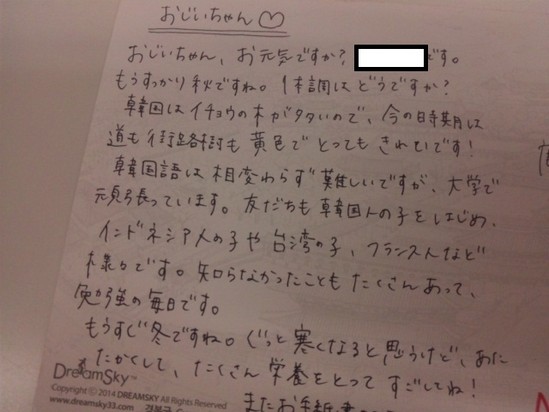 おじいちゃん♡
おじいちゃん、お元気ですか? です。
もうすっかり秋ですね。体調はどうですか?
韓国はイチョウの木が多いので、今の時期は
道も街路樹も黄色でとってもきれいです!
韓国語は相変わらず難しいですが、大学で
頑張っています。友だちも韓国人の子をはじめ、
インドネシア人の子や台湾の子、フランス人など
様々です。知らなかったこともたくさんあって、
勉強の毎日です。
もうすぐ冬ですね。ぐっと寒くなると思うけど、あた
たかくして、たくさん栄養をとってすごしてね!
またお手紙
DreamSky™
Copyright © 2014 DREAMSKY All Rights Reserved
www.dreamsky33.com